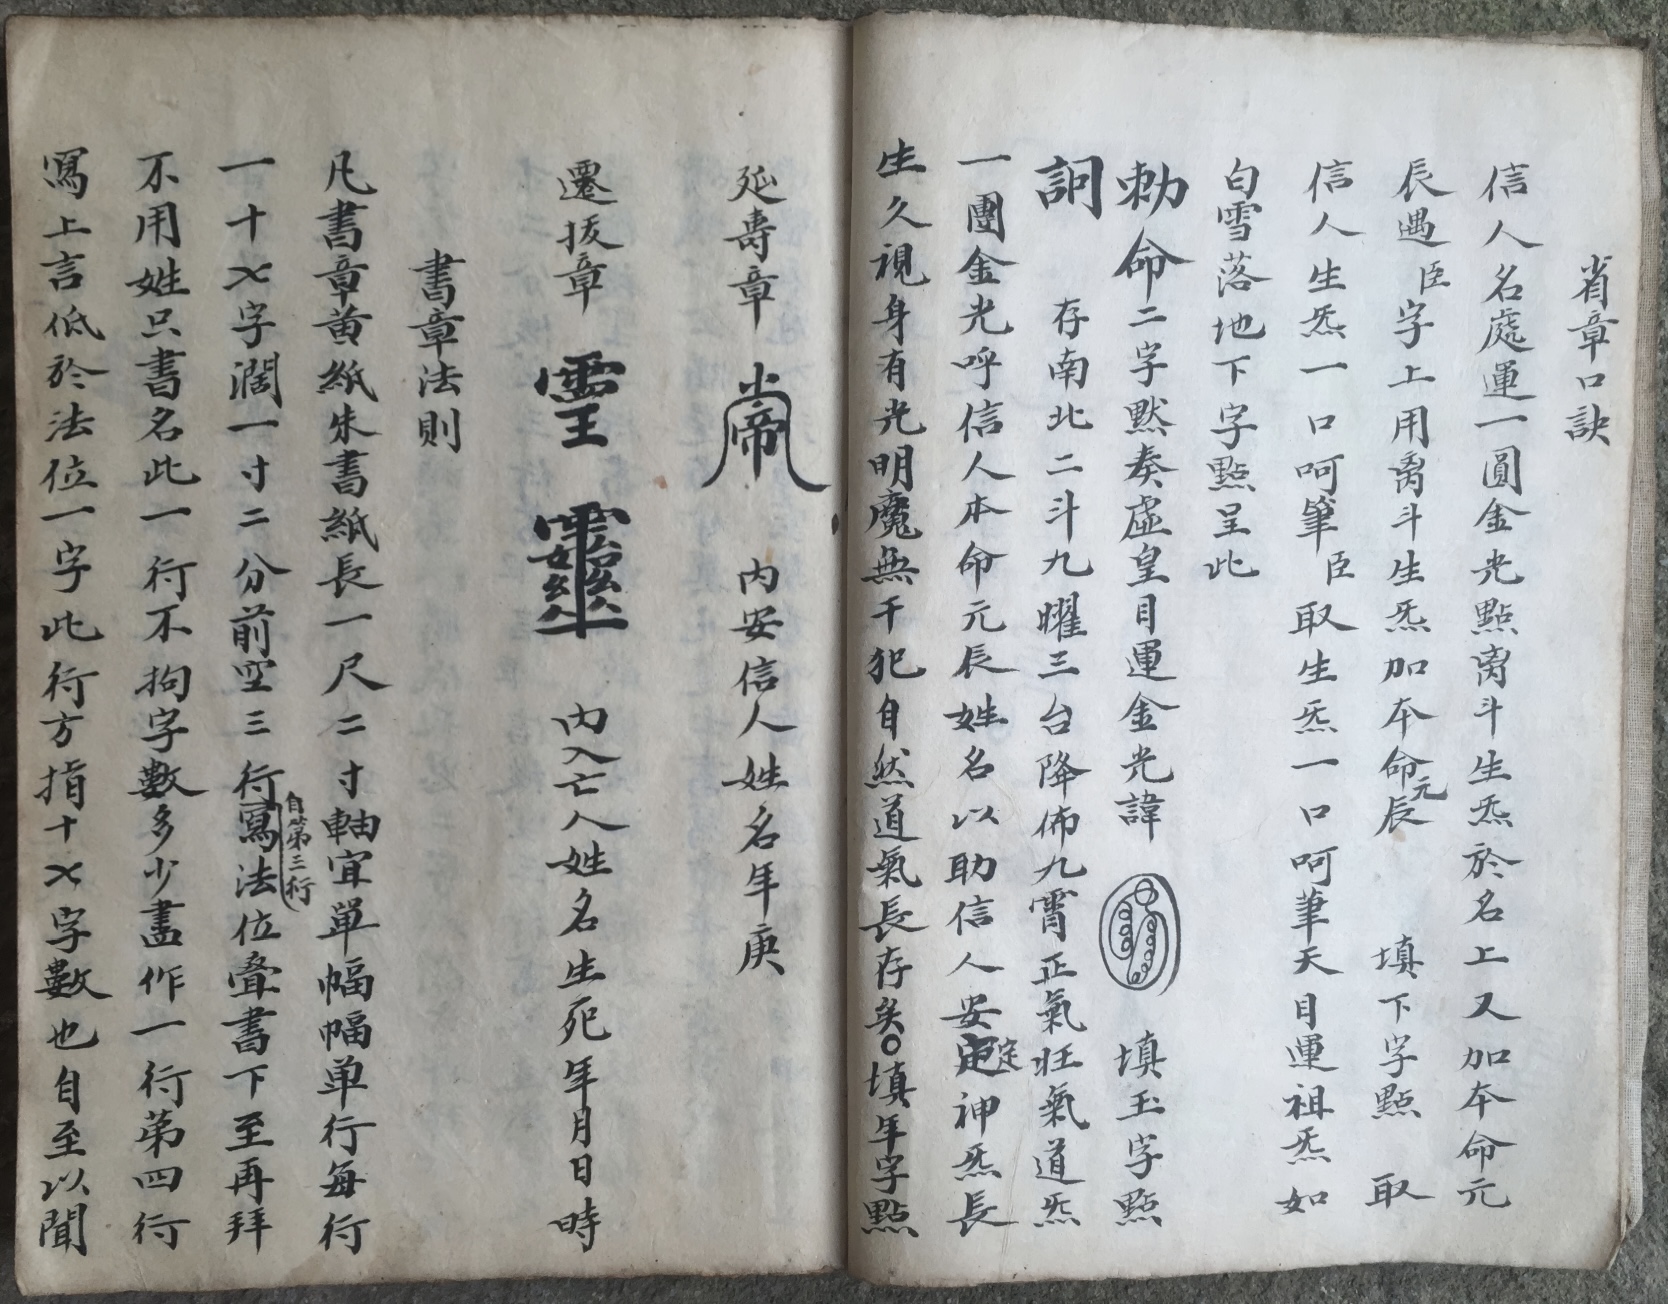 省章口訣
信人名處運一圓金光點离斗生炁於名上又加本命元
辰遇臣字上用离斗生炁加本命元辰 填下字點 取
信人生炁一口呵筆臣取生炁一口呵筆天目運祖炁如
白雪落地下字點呈此
勅命二字默奏虛皇目運金光諱 填玉字點
詞 存南北二斗九曜三台降佈九霄正氣旺氣道炁
一團金光呼信人本命元辰姓名以助信人安定神炁長
生久視身有光明魔無干犯自然道氣長存矣○填年字點
延壽章 內安信人姓名年庚
遷拔章 內入亡人姓名生死年月日時
書章法則
凡書章黃紙朱書紙長一尺二寸軸宜單幅幅单行每行
一十〤字濶一寸二分前空三行自第三行寫法位叠書下至再拜
不用姓只書名此一行不拘字數多少盡作一行第四行
寫上言低於法位一字此行方指十〤字數也自至以聞